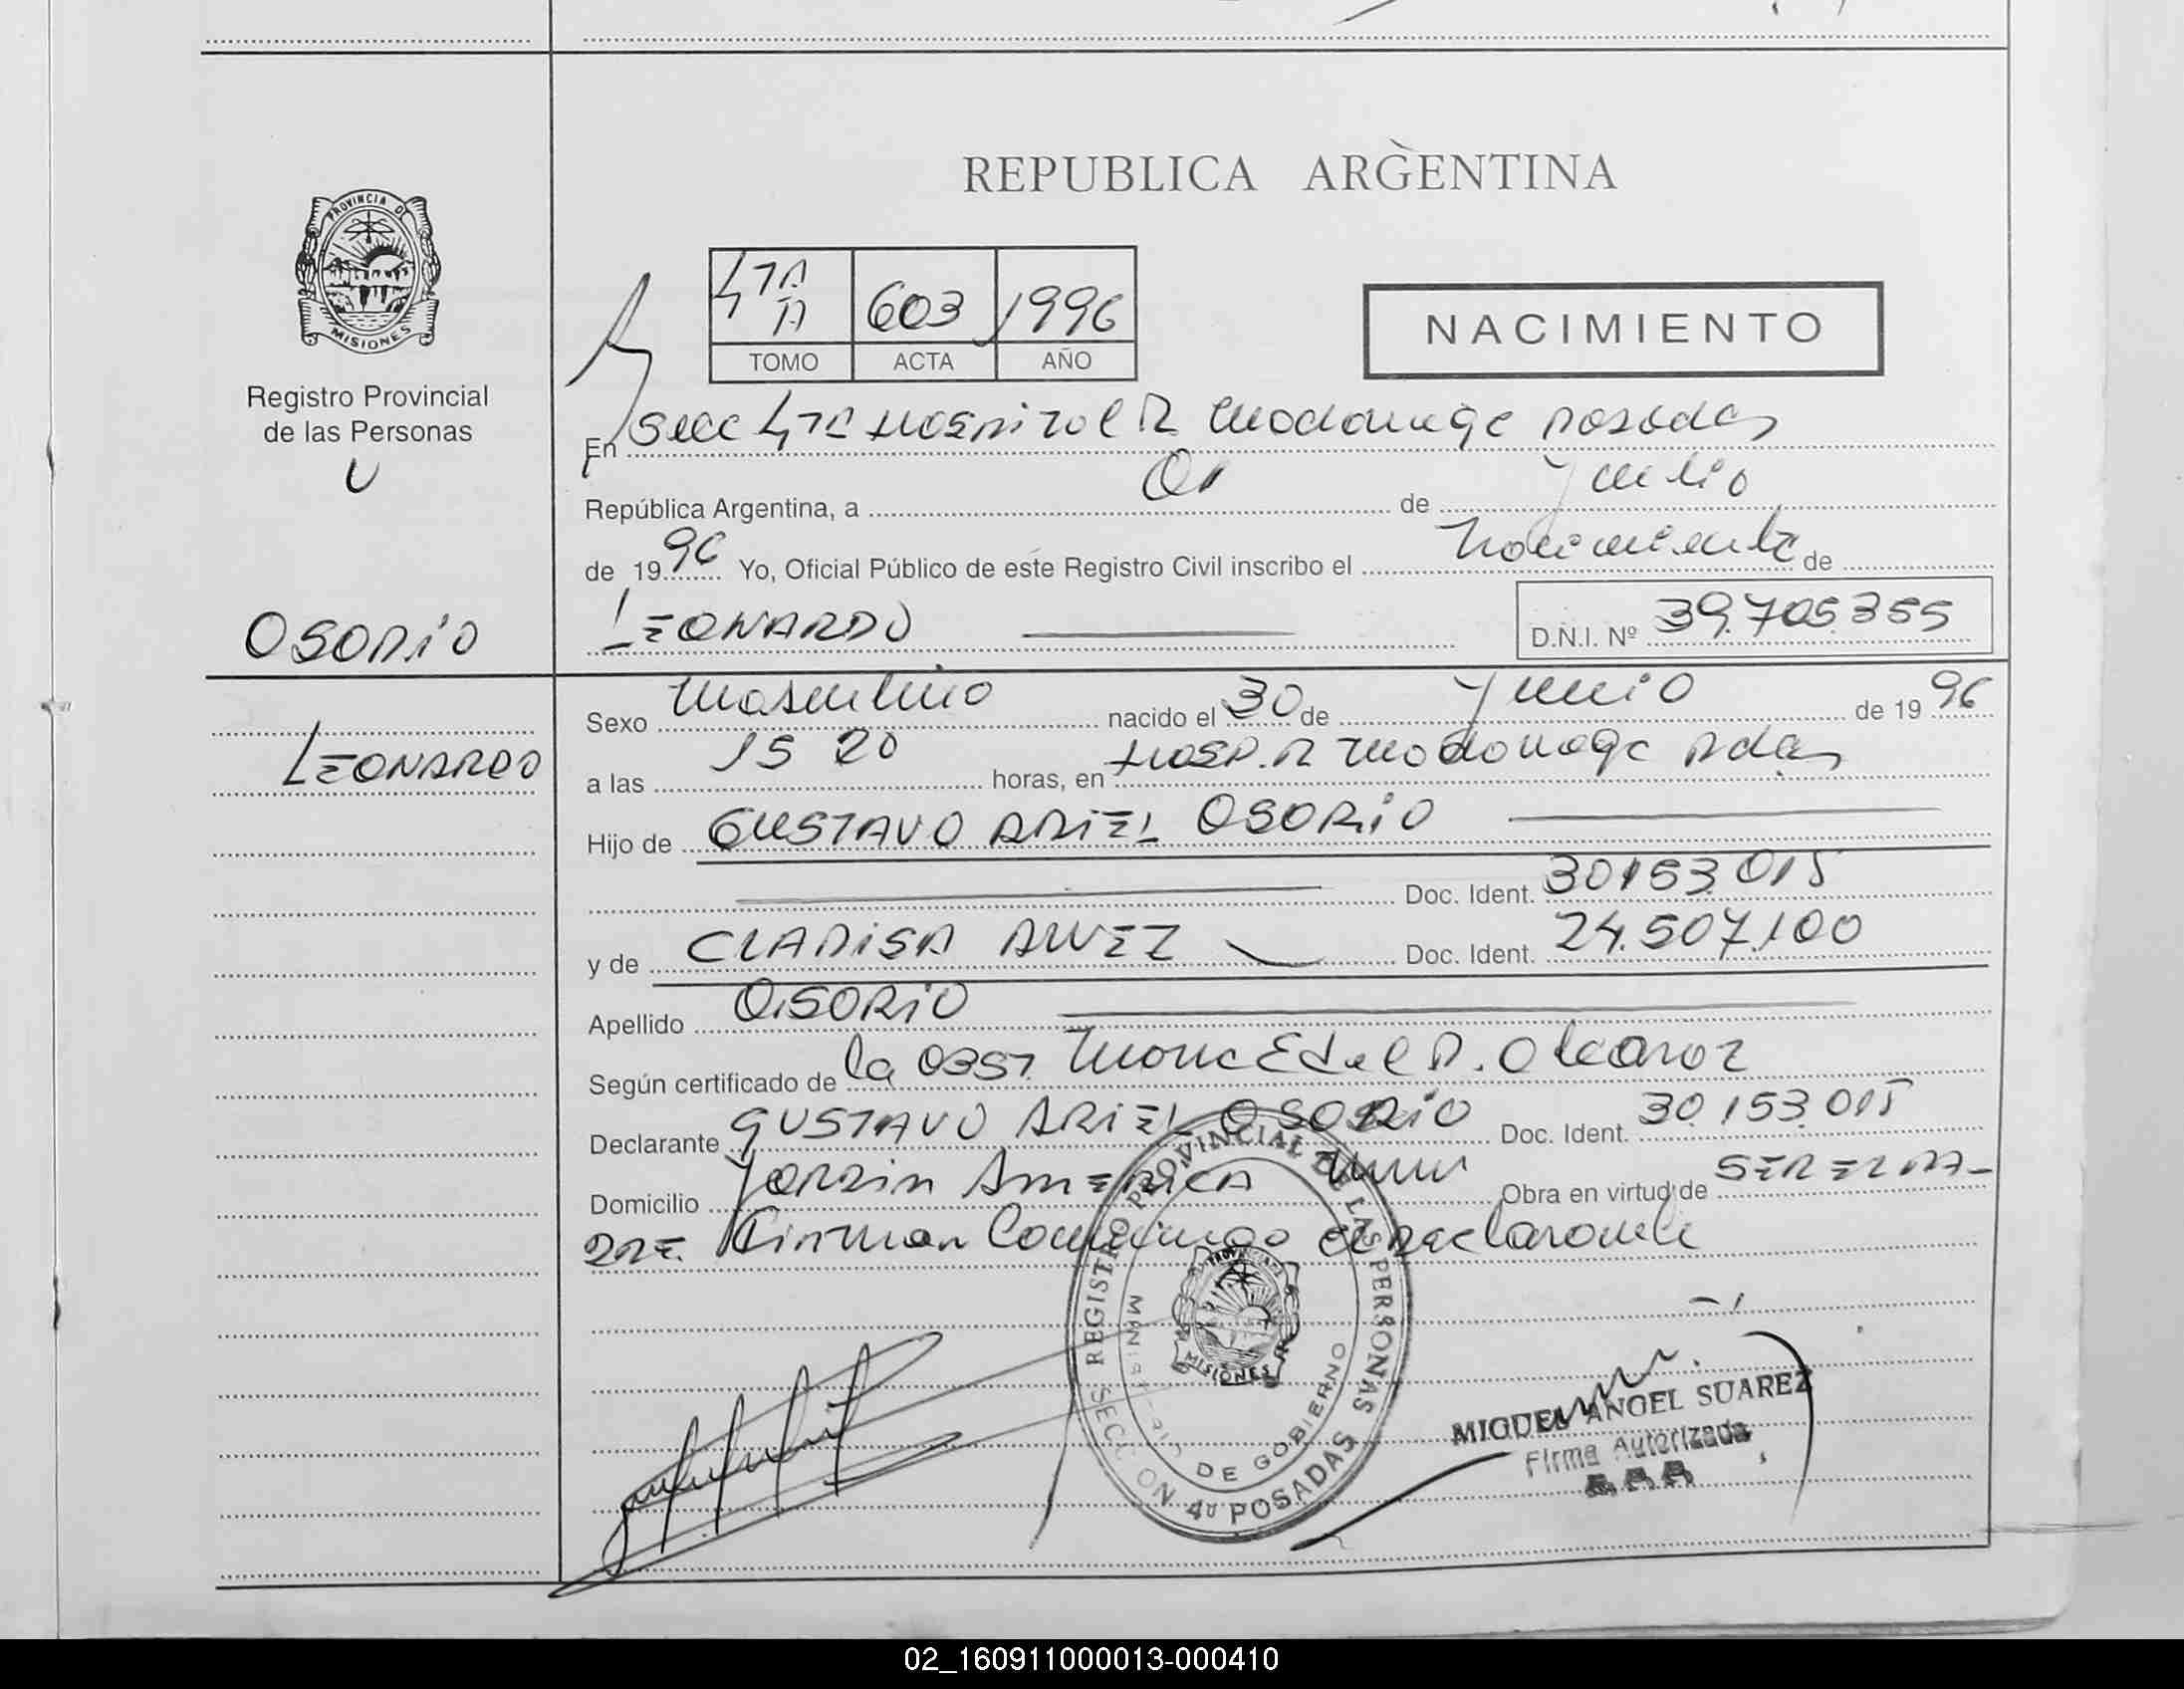 REPUBLICA ARGENTINA
PROVINCIA DE
MISIONES
Registro Provincial
de las Personas
4TA A 603 1996
TOMO ACTA AÑO
NACIMIENTO
En Secc 4ta Hospital R. Madariaga Posadas
República Argentina, a 01 de Julio
de 1996 Yo, Oficial Público de este Registro Civil inscribo el Nacimiento de
OSORIO
LEONARDO D.N.I. Nº 39.705.355
LEONARDO
Sexo Masculino nacido el 30 de Junio de 1996
a las 15 20 horas, en Hosp. R Madariaga Pdas
Hijo de GUSTAVO ARIEL OSORIO
Doc. Ident. 30153.015
y de CLARISA ALVEZ Doc. Ident. 24.507.100
Apellido OSORIO
Según certificado de la Obst. Edel R. Alcaraz
Declarante GUSTAVO ARIEL OSORIO Doc. Ident. 30.153.015
Domicilio Jardin America Mnes Obra en virtud de SER EL PA-
DRE. Firman Conmigo el Declarante
REGISTRO PROVINCIAL DE LAS PERSONAS
MINISTERIO DE GOBIERNO
PROVINCIA DE
MISIONES
SECCION 4º POSADAS
MIGUEL ANGEL SUAREZ
Firma Autorizada
02_160911000013-000410